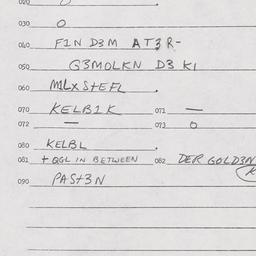 030 O
040 F1ND3M AT3R-
050 G3MOLKN D3 KI
060 MLxStEFL .
070 KELB1K 071 —
072 — 073 O
080 KELBL .
081 + QGL IN BETWEEN 082 DER GOLD3N
090 PASt3N